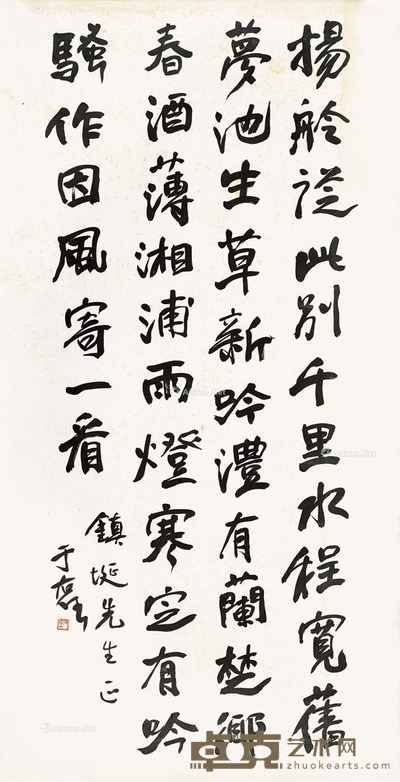 揚舲從此別千里水程寬舊
夢池生草新吟澧有蘭楚鄉
春酒薄湘浦雨燈寒定有吟
騷作因風寄一看
鎮埏先生正
于右任
卓克艺术网
zhuokearts.com